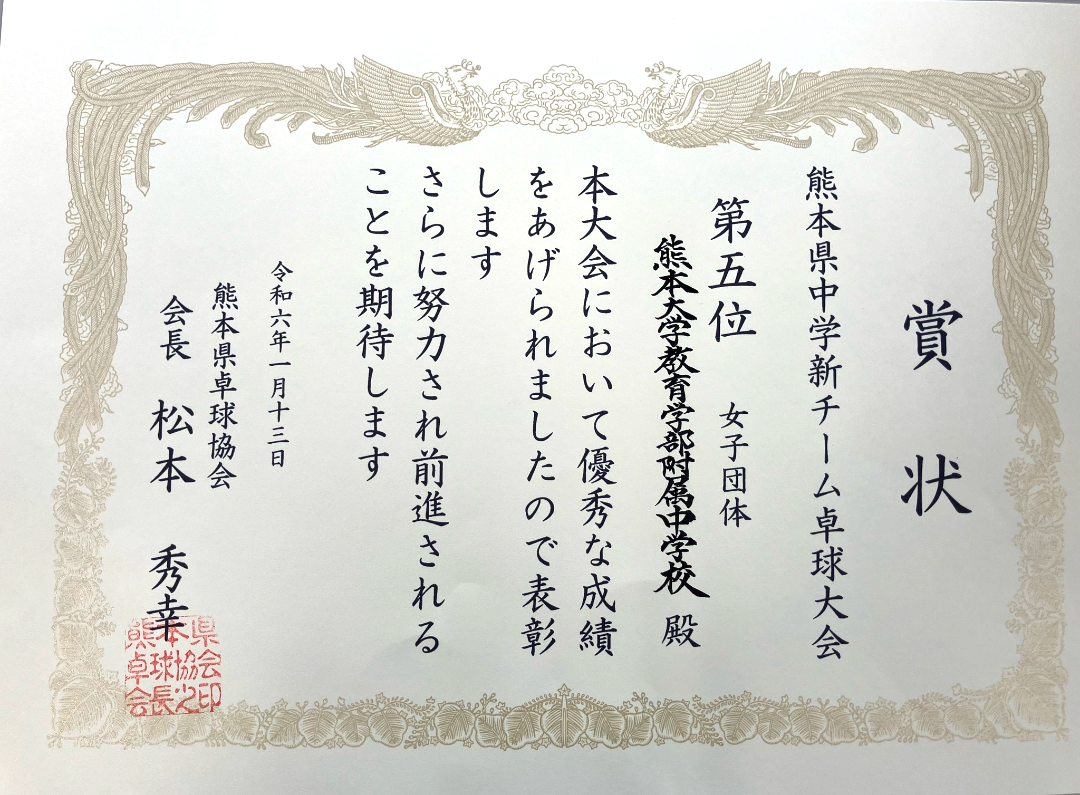 賞状
熊本県中学新チーム卓球大会
第五位 女子団体
熊本大学教育学部附属中学校 殿
本大会において優秀な成績
をあげられましたので表彰
します
さらに努力され前進される
ことを期待します
令和六年一月十三日
熊本県卓球協会
会長 松本 秀幸
熊本県
卓球協会
会長之印